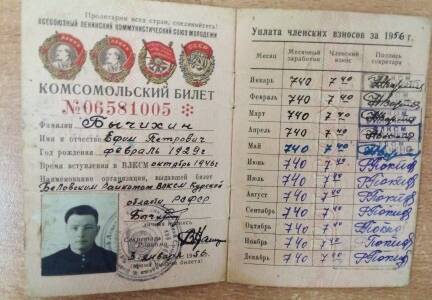 Пролетарии всех стран, соединяйтесь!
ВСЕСОЮЗНЫЙ ЛЕНИНСКИЙ КОММУНИСТИЧЕСКИЙ СОЮЗ МОЛОДЕЖИ
КОМСОМОЛЬСКИЙ БИЛЕТ
№06581005
Фамилия Бычихин
Имя и отчество Ефим Петрович
Год рождения февраль 1929 г
Время вступления в ВЛКСМ октябрь 1946 г
Наименование организации, выдавшей билет
Беловским Райкомом ВЛКСМ Курской
области, РСФСР
личная подпись
Секретарь
Райкома
3 января 1956 г.
время выдачи билета
Уплата членских взносов за 1956 г.
Месяц Месячный заработок Членский взнос Подпись секретаря
Январь 740 7 40
Февраль 740 7 40
Март 740 7 40
Апрель 740 7 40
Май 740 7 40
Июнь 740 7 40
Июль 740 7 40
Август 740 7 40
Сентябрь 740 7 40
Октябрь 740 7 40
Ноябрь 740 7 40
Декабрь 740 7 40